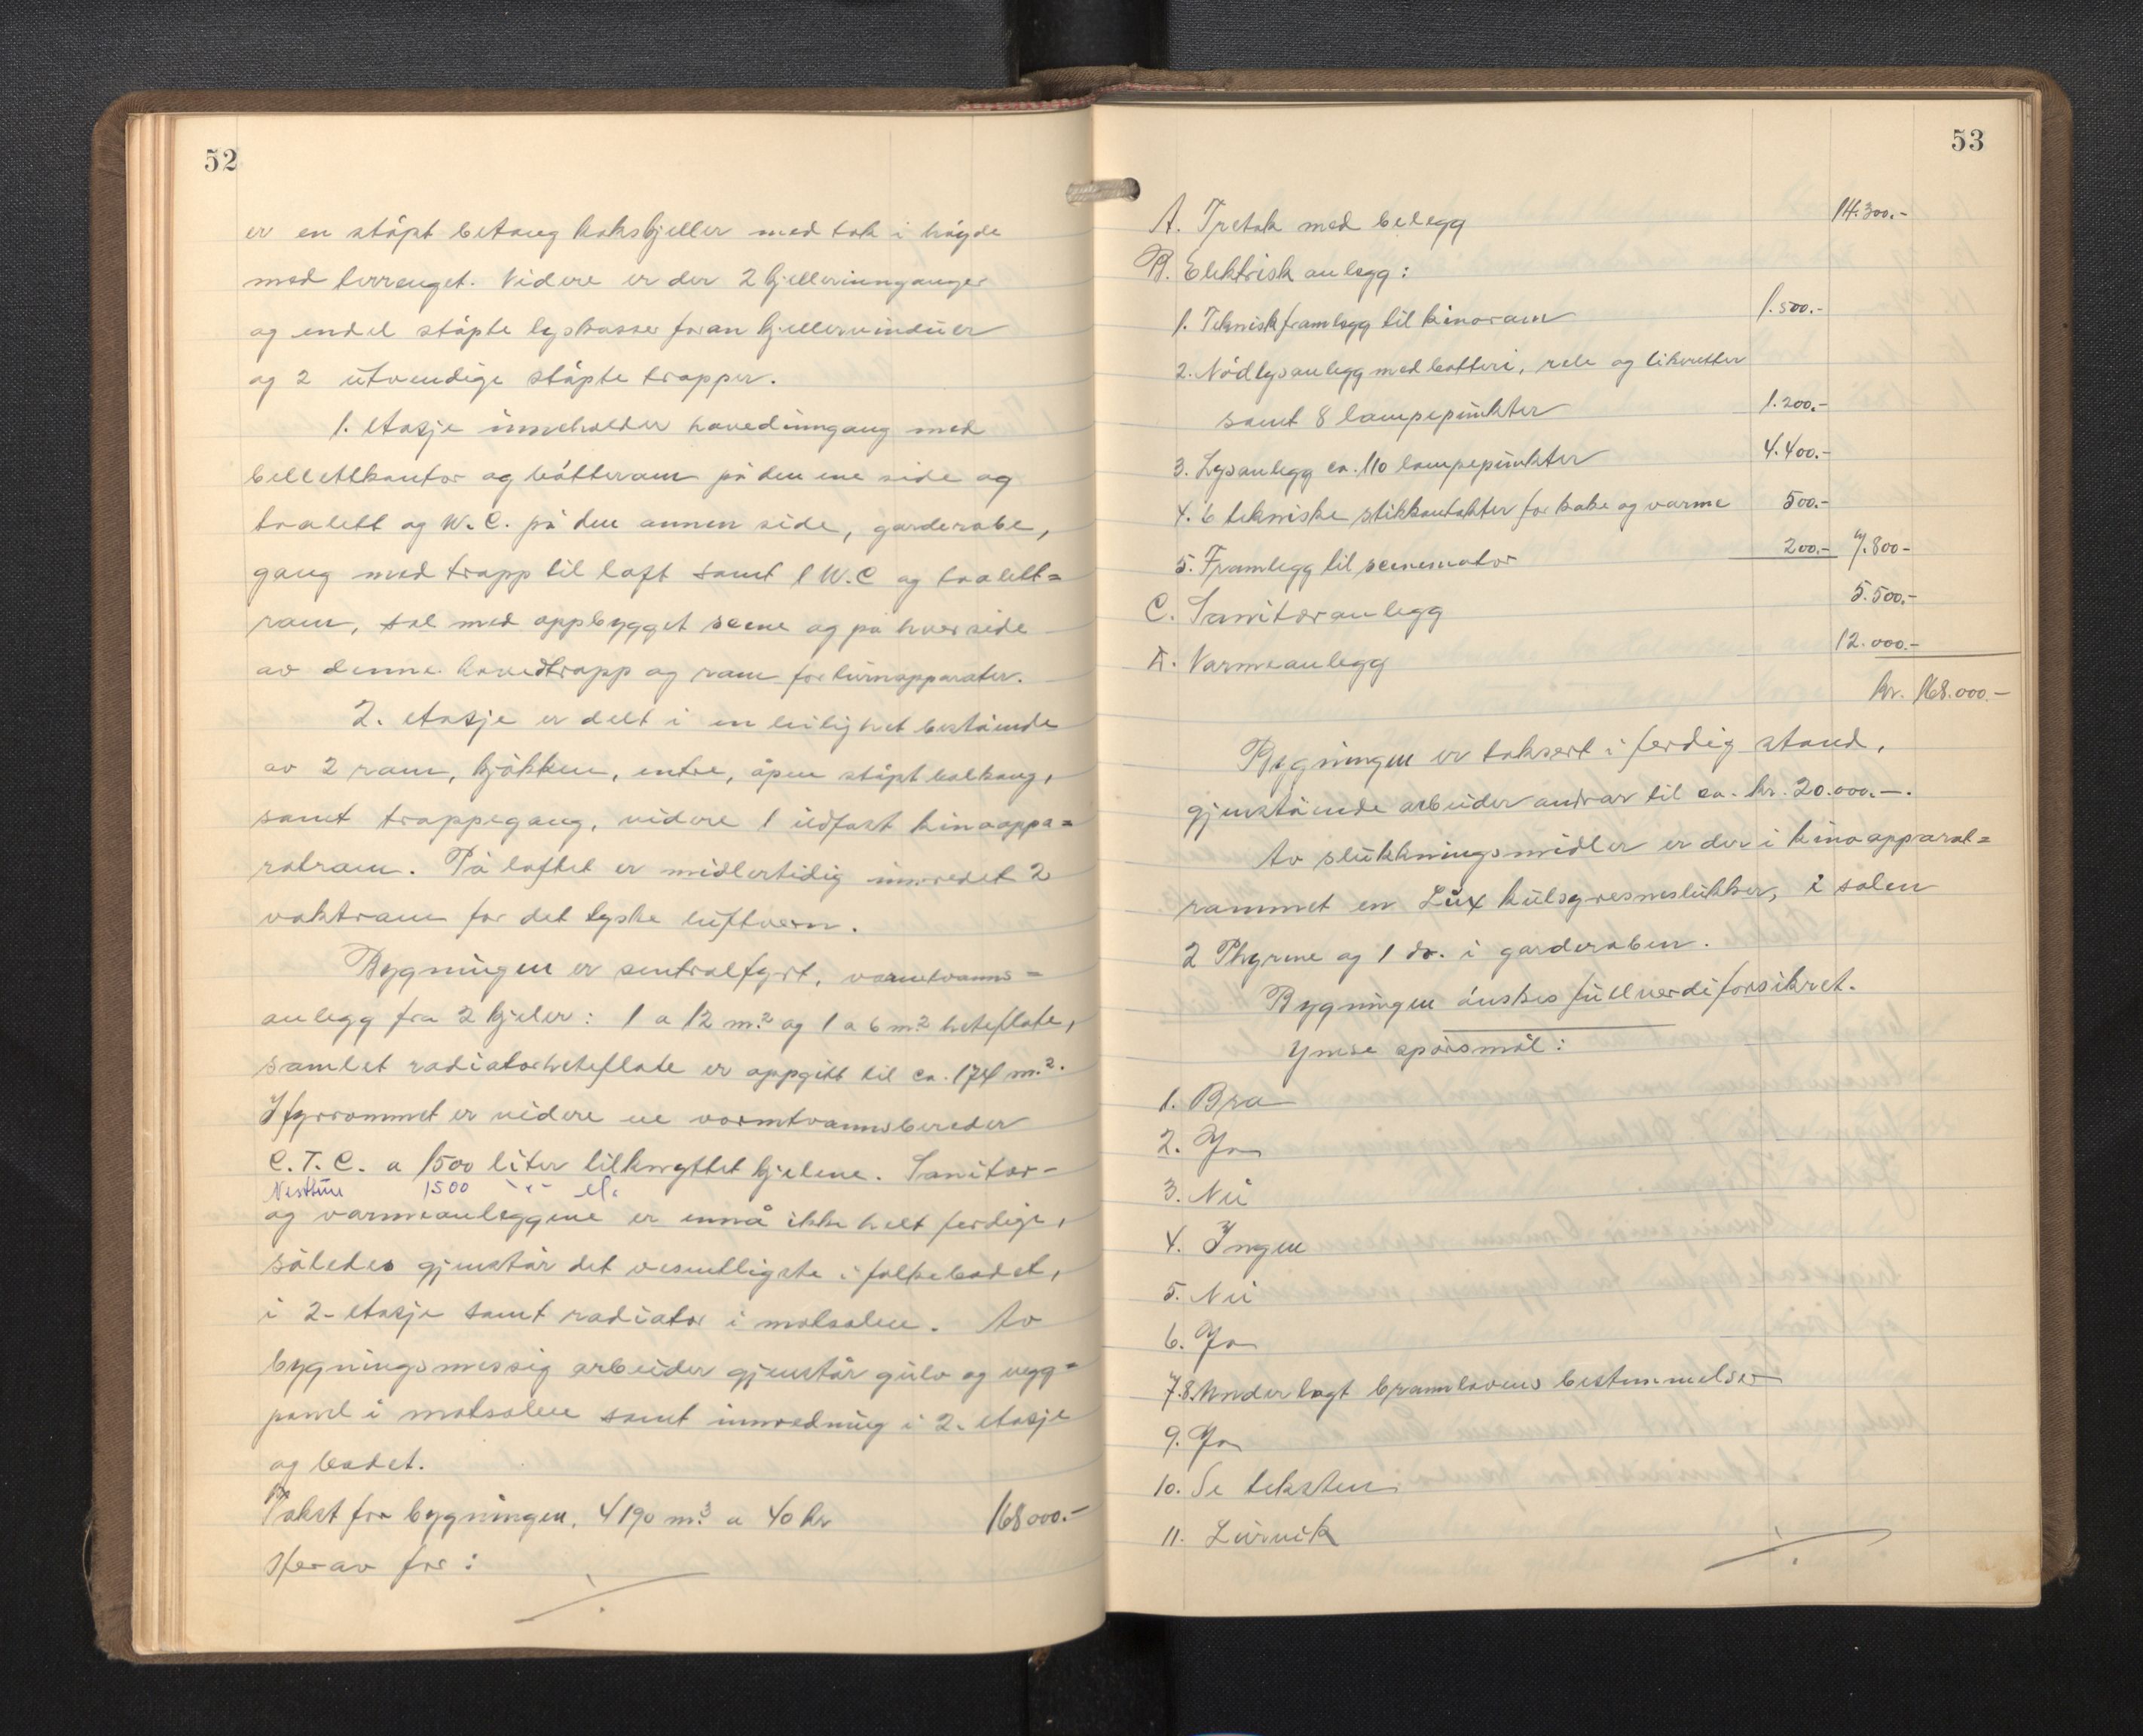 52
er en støpt betong kokskjeller med tak i høyde
med terrenget. Videre er der 2 kjellerinnganger
og endel støpte lyskasser foran kjellervinduer
og 2 utvendige støpte trapper.
1. etasje inneholder hovedinngang med
billettkontor og bøtterom på den ene side og
toalett og W.C. på den annen side, garderobe,
gang med trapp til loft samt 1 W.C og toalett=
rom, sal med oppbygget scene og på hver side
av denne hovedtrapp og rom for turnapparater.
2. etasje er delt i en leilighet bestående
av 2 rom, kjøkken, entre, åpen støpt balkong,
samt trappegang, videre 1 ildfast kinoappa=
ratrom. På loftet er midlertidig innredet 2
vaktrom for det tyske luftvern.
Bygningen er sentralfyrt, varmtvanns=
anlegg fra 2 kjeler: 1 a 12 m.² og 1 a 6 m² heteflate,
samlet radiatorheteflate er oppgitt til ca. 174 m.².
I fyrrommet er videre en varmtvannsbereder
C.T.C. a 1500 liter tilknyttet kjelene. Sanitær-
Nesttun 1500 -"- el.
og varmeanleggene er ennå ikke helt ferdige,
således gjenstår det vesentligste i folkebadet,
i 2. etasje samt radiator i matsalen. Av
bygningsmessig arbeider gjenstår gulv og vegg=
panel i matsalen samt innredning i 2. etasje
og badet.
Takst for bygningen, 4190 m.³ a 40 kr 168000.-
Herav for:
./.
53
A. Tretak med belegg 14.300.-
B. Elektrisk anlegg:
1. Teknisk framlegg til kinorom 1.500.-
2. Nødlysanlegg med batteri, rele og likeretter
samt 8 lampepunkter 1.200.-
3. Lysanlegg ca. 110 lampepunkter 4.400.-
4. 6 tekniske stikkontakter for koke og varme 500.-
5. Framlegg til scenemotor 200.- 7.800-
C. Sanitæranlegg 5.500.-
D. Varmeanlegg 12.000.-
kr. 168.000.-
Bygningen er taksert i ferdig stand,
gjenstående arbeider andrar til ca. kr. 20.000.-.
Av slukkningsmidler er der i kinoapparat=
rommet en Lux kulsyresneslukker, i salen
2 Phyrene og 1 do. i garderoben.
Bygningen ønskes fullverdiforsikret.
Ymse spørsmål:
1. Bra
2. Ja
3. Nei
4. Ingen
5. Nei
6. Ja
7.8. Underlagt brannlovens bestemmelser
9. Ja
10. Se teksten
11. Lurvik
./.